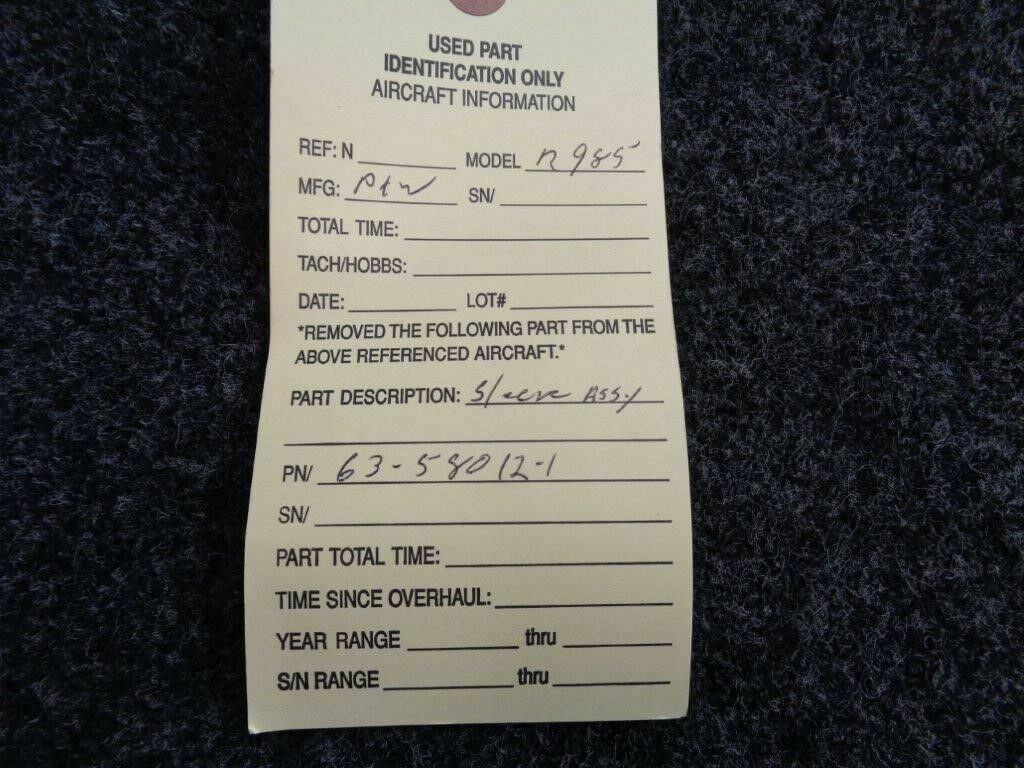 USED PART
IDENTIFICATION ONLY
AIRCRAFT INFORMATION
REF: N ________ MODEL R985
MFG: P&W SN/ ________
TOTAL TIME: ________
TACH/HOBBS: ________
DATE: ________ LOT# ________
*REMOVED THE FOLLOWING PART FROM THE
ABOVE REFERENCED AIRCRAFT.*
PART DESCRIPTION: Sleeve ASSY
PN/ 63-58012-1
SN/ ________
PART TOTAL TIME: ________
TIME SINCE OVERHAUL: ________
YEAR RANGE ________ thru ________
S/N RANGE ________ thru ________